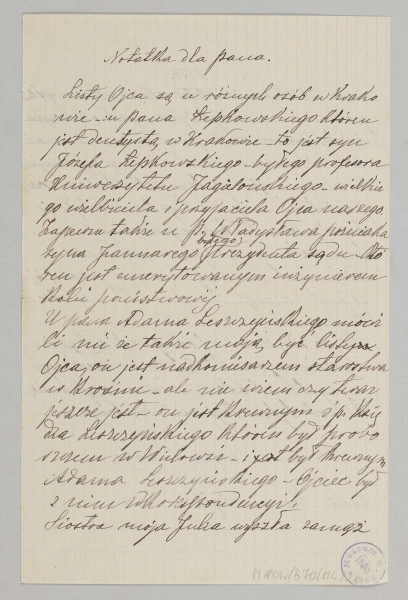 Notatka dla pana.
Listy Ojca są u różnych osób w Krako
wie - u pana Łepkowskiego który
jest dentystą w Krakowie - to jest syn
Józefa Łepkowskiego - byłego profesora
Uniwersytetu Jagielońskiego - wielkie
go wielbiciela i przyjaciela Ojca naszego
także u P. Władysława
byłego
syna Prezydenta sądu - Któ
ren jest emerytowanym inżynierem
Kolei państwowej
U pana Adama Leszczyńskiego mówi
li mi że także mają być listy
Ojca, on jest nadkomisarzem starostwa
w Krośnie - ale nie wiem czy teraz
jeszcze jest - on jest Krewnym ś.p. Księ
dza Leszczyńskiego który był probo
szczem w - i jest był krewnym
Adama Leszczyńskiego - Ojciec był
z nim w Korespondencyi.
Siostra moja Julia wyszła zamąż